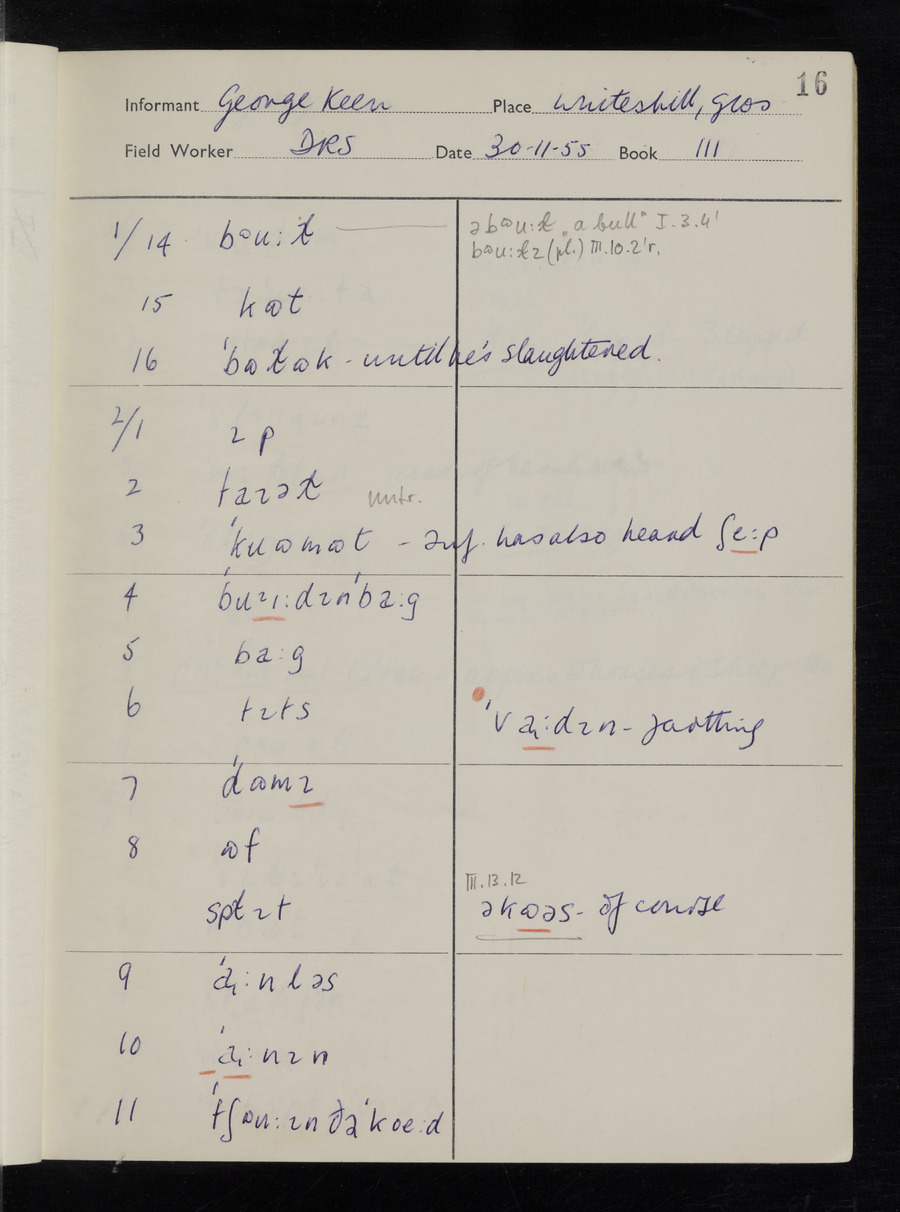 16
Informant George Keen Place Whiteshill, Glos
Field Worker DRS Date 30-11-55 Book III
1/14 bɷuːɫ əbɷuːɫ „a bull" I.3.4'
bɷuːɫz (pl.) III.10.2'r.
15 kɷt
16 ˈbɷɫɷk - until he's slaughtered.
2/1 ɪp
2 taɪəɫ untr.
3 ˈkɹɷmɷt - Inf. has also heard ʃeːp
4 ˈbɹɪiːdɪnˈbaːg
5 baːg
6 tɪts ˈvɑːdɪn - farthing
7 ˈdɷmɪ
8 ɷf
spɫɪt III.13.12
əkɷəs - of course
9 ˈɑːnləs
10 ˈɑːnɪn
11 ˈtʃɷuːɪn ðəˈkɷeːd